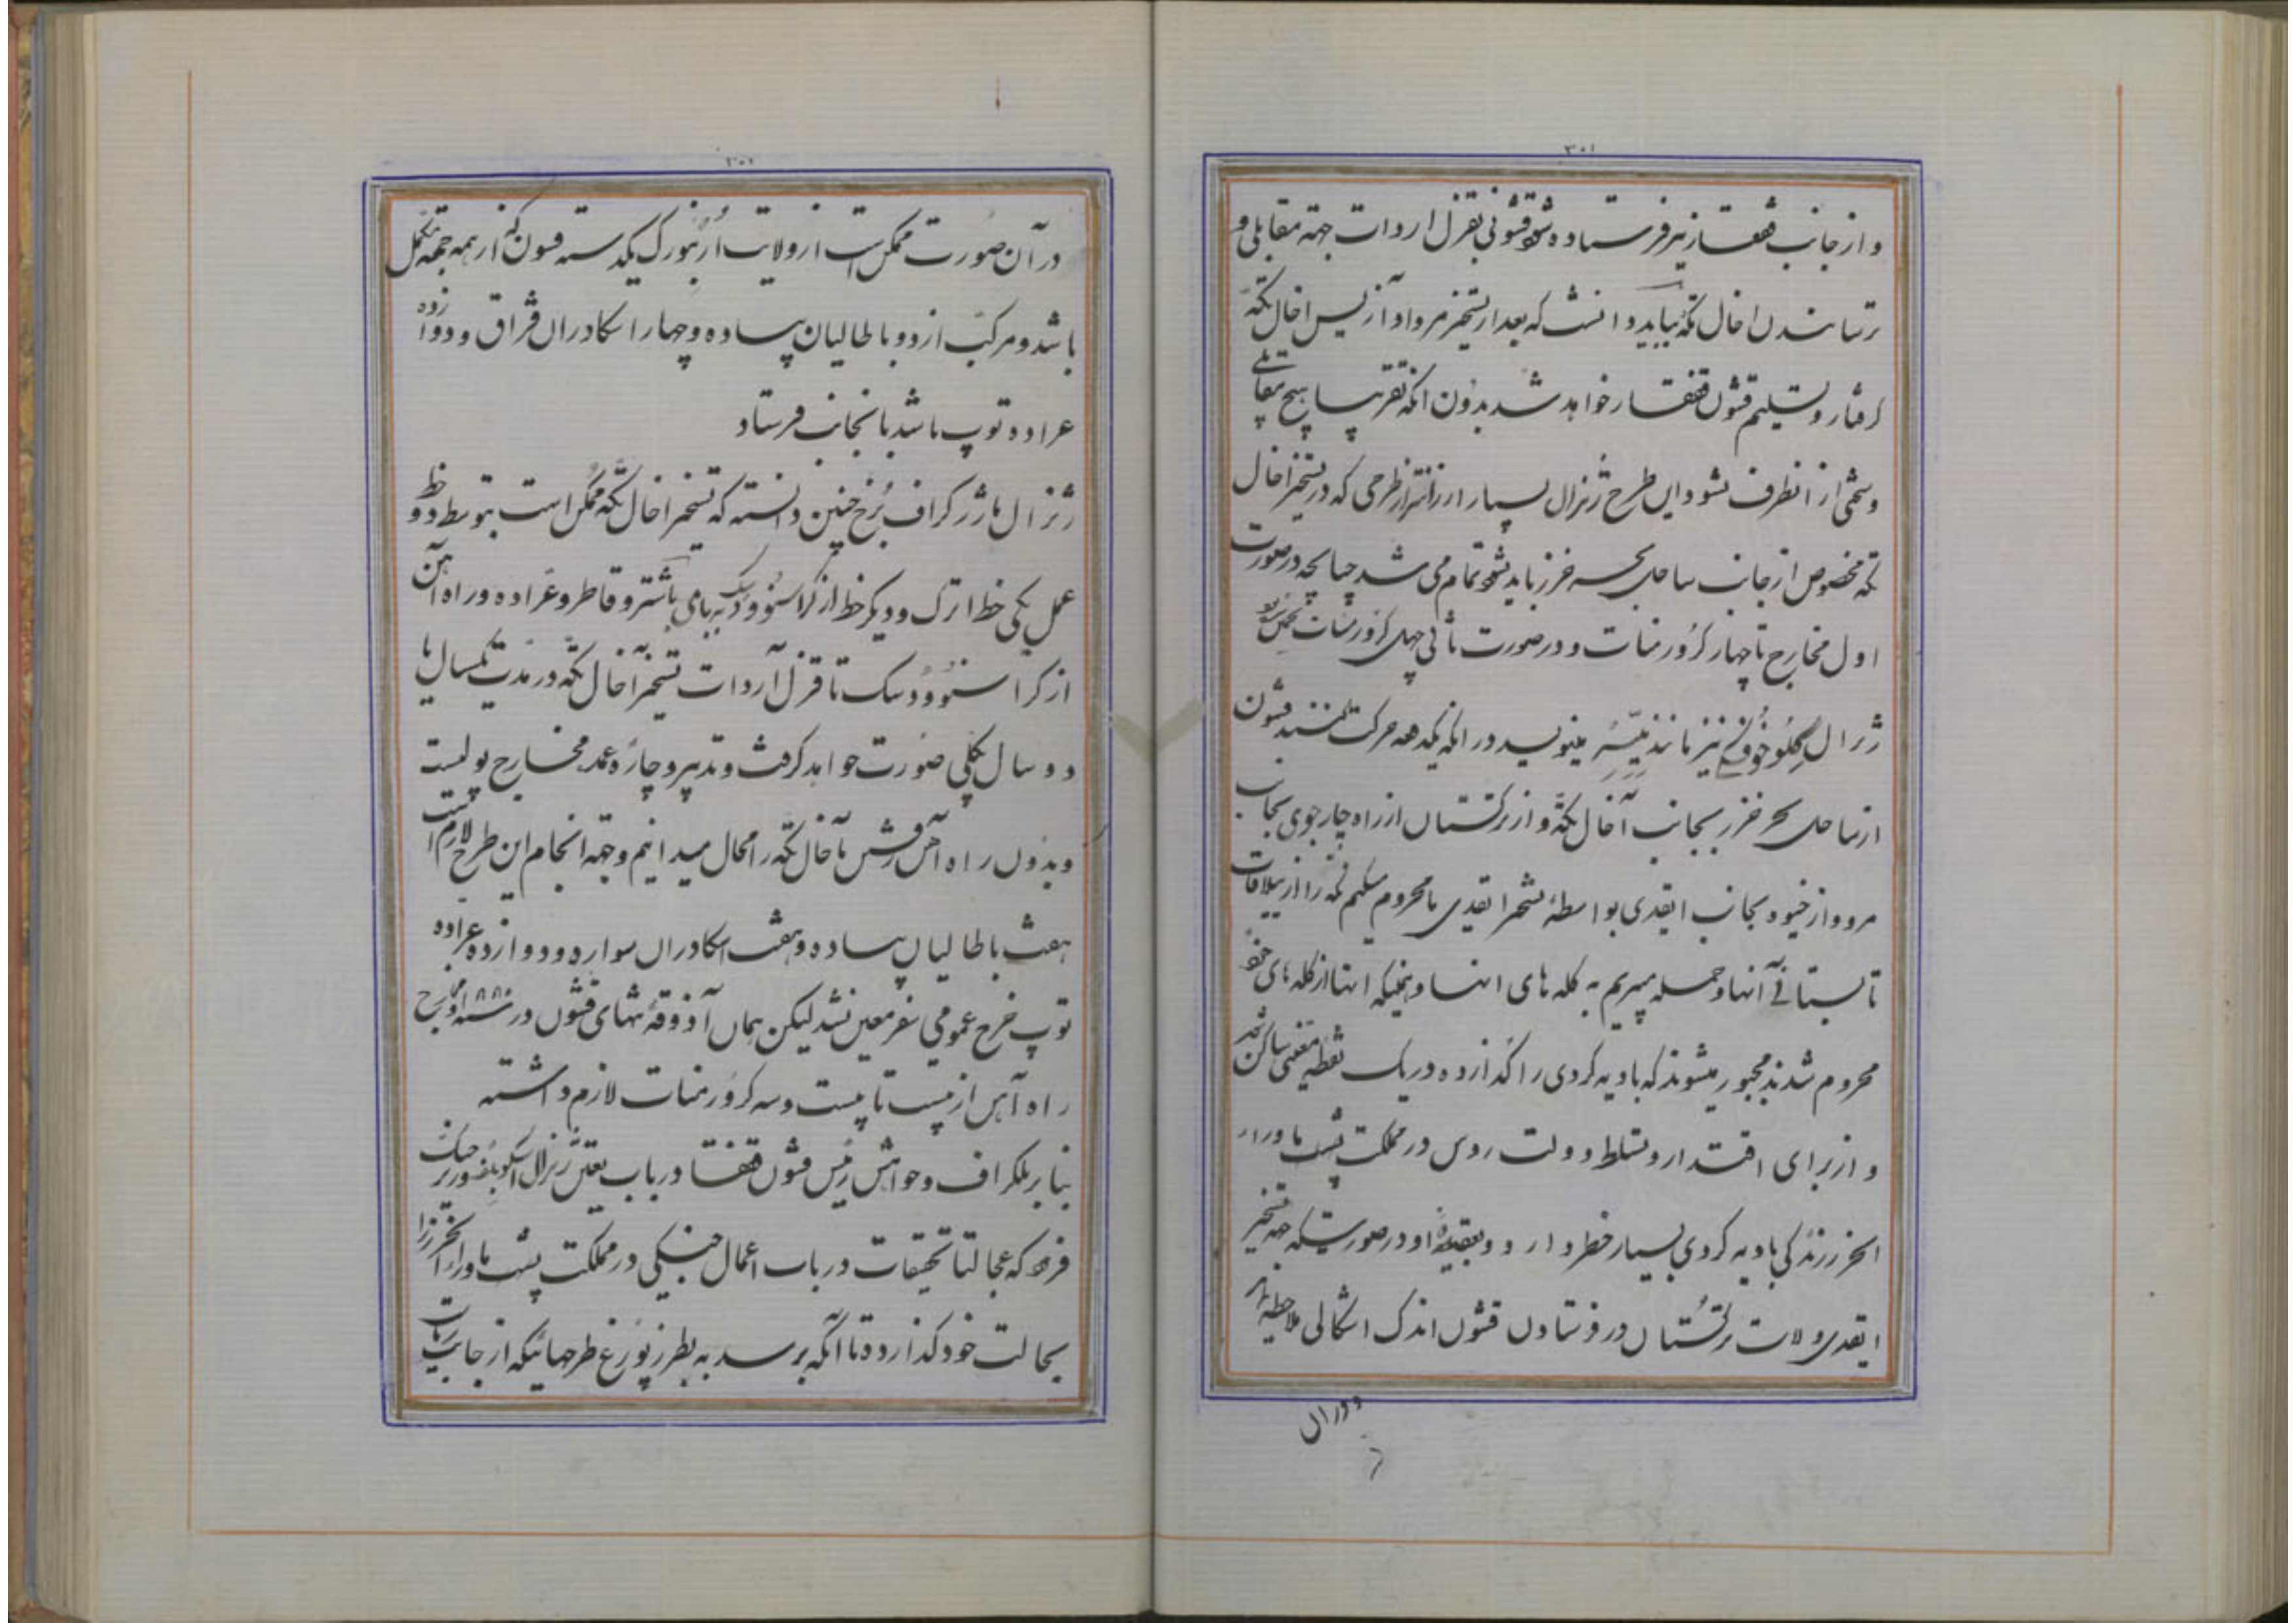 ۳۰۱
و از جانب قفقاز نیز فرستاده شود قشونی بقزل اروات جهة مقابلی و
ترسانیدن اخال تکه بباید دانست که بعد از تسخیر مرو او آز پس اخال تکه
گرفتار و تسلیم قشون قفقاز خواهد شد بدون انکه تقریبا هیچ مقابلی
و سختی از انطرف بشود این طرح ژنرال بسیار ارزانتر از طرحی که در تسخیر اخال
تکه مخصوص از جانب ساحل بحر خزر باید بشود تمام می شد چنانچه در صورت
اول مخارج تا چهار کرور منات و در صورت ثانی چهل کرور منات
ژنرال گلوخوفسکی نیز مانند میسر مینویسد در انکه یکدفعه حرکت کنند قشون
از ساحل بحر خزر بجانب آخال تکه و از ترکستان از راه چارجوی بجانب
مرو و از خیوه بجانب ایقدی بواسطهٔ تسخیر ایقدی ما محروم میکنیم تکه را از ییلاقات
تابستانی آنها و حمله میبریم به گله های انها و همینکه انها از گله های خود
محروم شدند مجبور میشوند که بادیه گردی را گذارده در یک نقطه معینی ساکن شوند
و از برای اقتدار و تسلط دولت روس در مملکت پشت ماوراء
الخزر زندگی بادیه گردی بسیار خطر دارد و بعقیدهٔ او در صورتیکه جهة تسخیر
ایقدی ولایت ترکستان در فرستادن قشون اندک اشکالی ملاحظه نماید
در ان
۳۰۲
در آن صورت ممکن است از ولایت اُرنبورک یکدسته قسون که از همه جهة مکمل
باشد و مرکب از دو باطالیان پیاده و چهار اسکادران قزاق و دوازده
عراده توپ باشد بانجانب فرستاد
ژنرال ماژر گراف بُرخ چنین دانسته که تسخیر اخال تکه ممکن است بتوسط دو خط
عمل یکی خط اترک و دیگر خط از کراسنووودسک به بامی با شتر و قاطر و عراده و راه آهن
از کراسنووودسک تا قزل آروات تسخیر آخال تکه در مدت یکسال یا
دو سال بکلی صورت خواهد گرفت و تدبیر و چارهٔ عمده مخارج پولیست
و بدون راه آهن رفتن باخال تکه را محال میدانیم و جهة انجام این طرح لازم است
هفت باطالیان پیاده و هفت اسکادران سواره و دوازده عراده
توپ خرج عمومی سفر معین نشد لیکن همان آذوقهٔ تنهای قشون در سنه ۱۸۸۰ و مخارج
راه آهن از بیست تا بیست و سه کرور منات لازم داشته
بنا بر تلگراف و خواهش رئیس قشون قفقاز در باب تعیین ژنرال اسکوبلف وزیر جنگ
فرمود که عجالتا تحقیقات در باب اعمال جنگی در مملکت پشت ماوراء الخزر را
بحالت خود گذارده تا آنکه برسد به پطرزبورغ طرحهائیکه از جانب